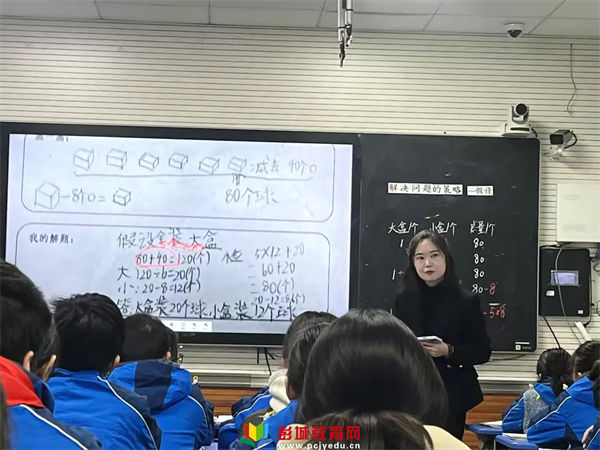 画一画:
减去 40个
-8个=
80个球
我的解题:
假设全装大盒
80+40=120(个)
大 120÷6=20(个)
小: 20-8=12(个)
答:大盒装20个球,小盒装12个球.
检
5×12+20
=60+20
=80(个)
20-12=8(个)
解决问题的策略 —假设
大盒/个 小盒/个 总量/个
1
80
80
80
80-8
-5×8
彭城教育网
www.pcjyedu.cn